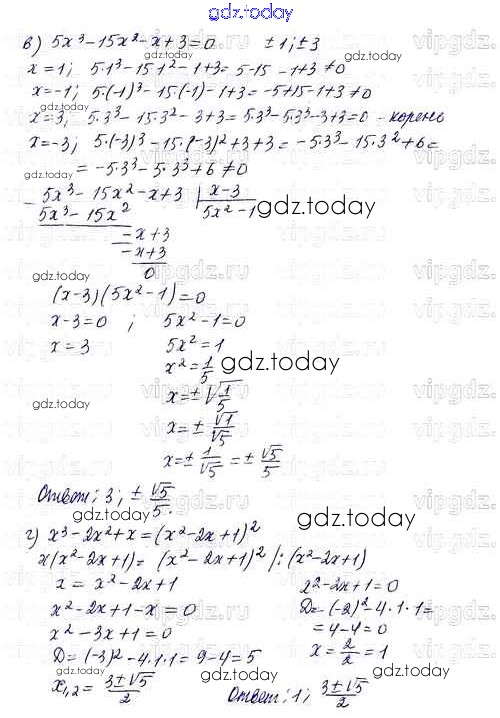 gdz.today
в) 5x³-15x²-x+3=0 ±1; ±3
x=1; 5·1³-15·1²-1+3=5-15-1+3≠0
x=-1; 5·(-1)³-15·(-1)-1+3=-5+15-1+3≠0
x=3, 5·3³-15·3²-3+3=5·3³-5·3³-3+3=0 - корень
x=-3; 5·(-3)³-15·(-3)²+3+3=-5·3³-15·3²+6=
=-5·3³-5·3³+6≠0
5x³-15x²-x+3 | x-3
5x³-15x² 5x²-1
gdz.today
-x+3
-x+3
0
gdz.today
(x-3)(5x²-1)=0
x-3=0; 5x²-1=0
x=3 5x²=1
x²=1/5
gdz.today
x=±√1/5
gdz.today
x=±√1/√5
x=±1/√5=±√5/5
Ответ: 3; ±√5/5.
gdz.today
г) x³-2x²+x=(x²-2x+1)²
x(x²-2x+1)=(x²-2x+1)² |:(x²-2x+1)
x=x²-2x+1 x²-2x+1=0
x²-2x+1-x=0 D=(-2)²-4·1·1=
x²-3x+1=0 =4-4=0
D=(-3)²-4·1·1=9-4=5 x=2/2=1
x₁,₂=3±√5/2 Ответ: 1; 3±√5/2
gdz.today
vipgdz.ru